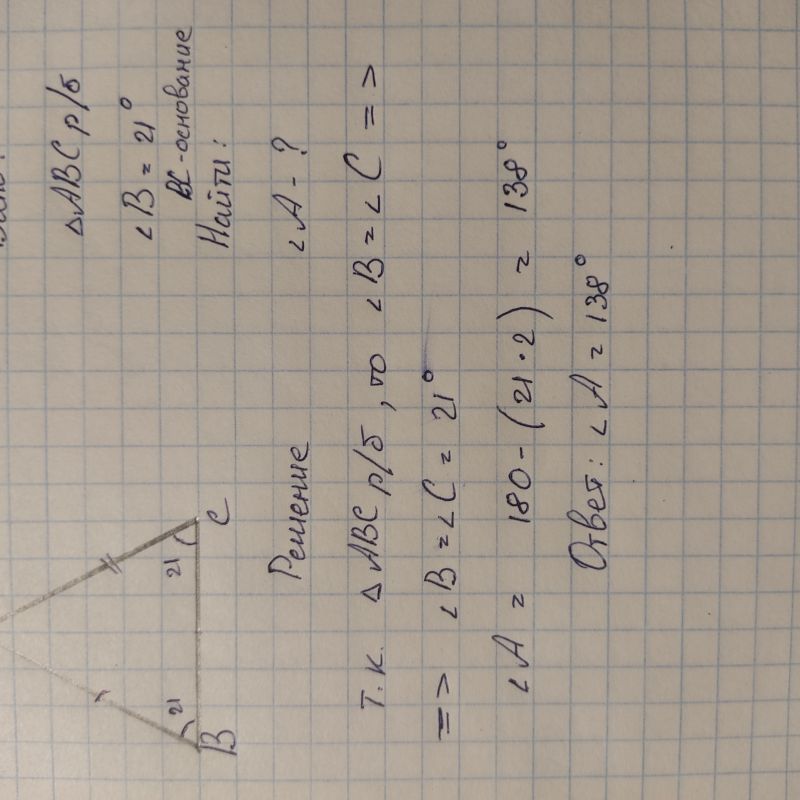 △ABC р/б
∠B = 21°
BC-основание
Найти:
∠A - ?
21
21
B
C
Решение
т.к. △ABC р/б, то ∠B = ∠C =>
=> ∠B = ∠C = 21°
∠A = 180 - (21·2) = 138°
Ответ: ∠A = 138°